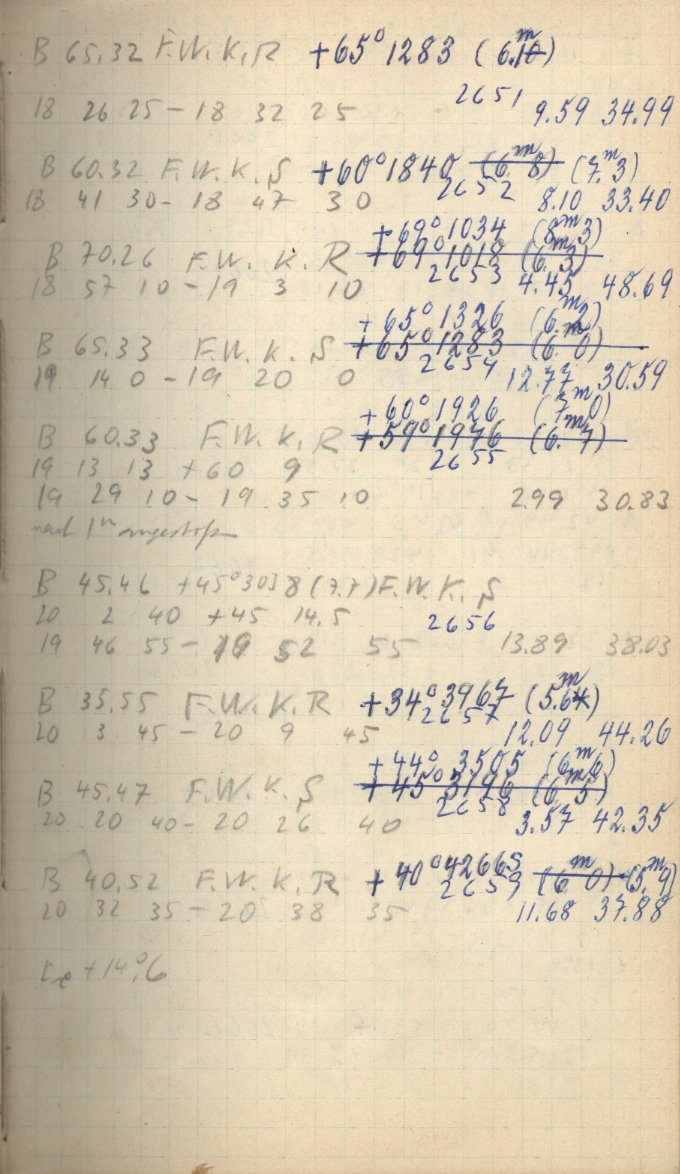 B 65,32 F.W.K,R +65° 1283 (6.ᵐ10)
2651
18 26 25 – 18 32 25 9.59 34.99
B 60.32 F.W.K.S +60° 1840 (6.ᵐ8) (7.ᵐ3)
2652
18 41 30 – 18 47 30 8.10 33.40
+69° 1034 (8.ᵐ3)
B 70.26 F.W.K.R +69° 1018 (6.ᵐ3)
2653
18 57 10 – 19 3 10 4.45 48.69
+65° 1326 (6.ᵐ2)
B 65.33 F.W.K.S +65° 1283 (6.ᵐ0)
2654
19 14 0 – 19 20 0 12.77 30.59
+60° 1926 (7.ᵐ0)
B 60.33 F.W.K,R +59° 1976 (6.ᵐ7)
2655
19 13 13 +60 9
19 29 10 – 19 35 10 2.99 30.83
nach 1ᵐ
B 45.46 +45° 3038 (7.7) F.W.K.S
20 2 40 +45 14.5 2656
19 46 55 – 19 52 55 13.89 38.03
B 35.55 F.W.K.R +34° 3967 (5.ᵐ64)
2657
20 3 45 – 20 9 45 12.09 44.26
+44° 3505 (6.ᵐ6)
B 45.47 F.W.K.S +45° 3196 (6.ᵐ5)
2658
20 20 40 – 20 26 40 3.57 42.35
B 40.52 F.W.K.R +40° 4266S (6.ᵐ0) (5.ᵐ9)
2659
20 32 35 – 20 38 35 11.68 37.88
+14°.6